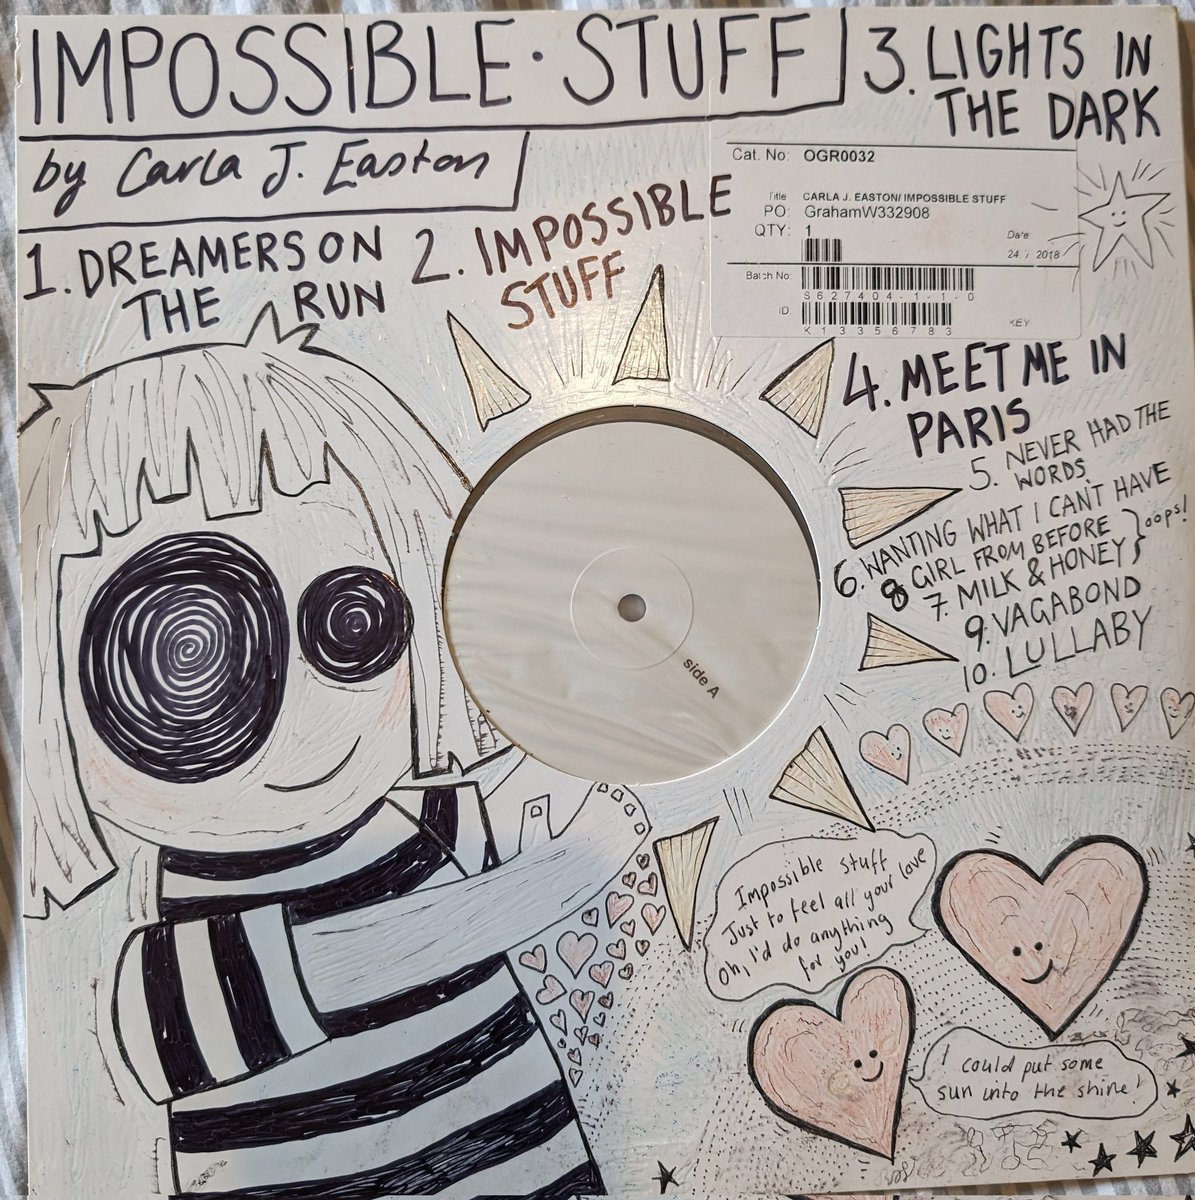 IMPOSSIBLE · STUFF
by Carla J. Easton
1. DREAMERS ON
THE RUN
2. IMPOSSIBLE
STUFF
3. LIGHTS IN
THE DARK
Cat. No: OGR0032
Title CARLA J. EASTON/ IMPOSSIBLE STUFF
PO: GrahamW332908
QTY: 1
Date
24 / 2018
Batch No:
S627404-1-1-0
ID:
K13356783
KEY
4. MEET ME IN
PARIS
5. NEVER HAD THE
WORDS
6. WANTING WHAT I CAN'T HAVE
8 GIRL FROM BEFORE
7. MILK & HONEY } oops!
9. VAGABOND
10. LULLABY
side A
Impossible stuff
Just to feel all your love
Oh, I'd do anything
for you!
I could put some
sun into the shine!